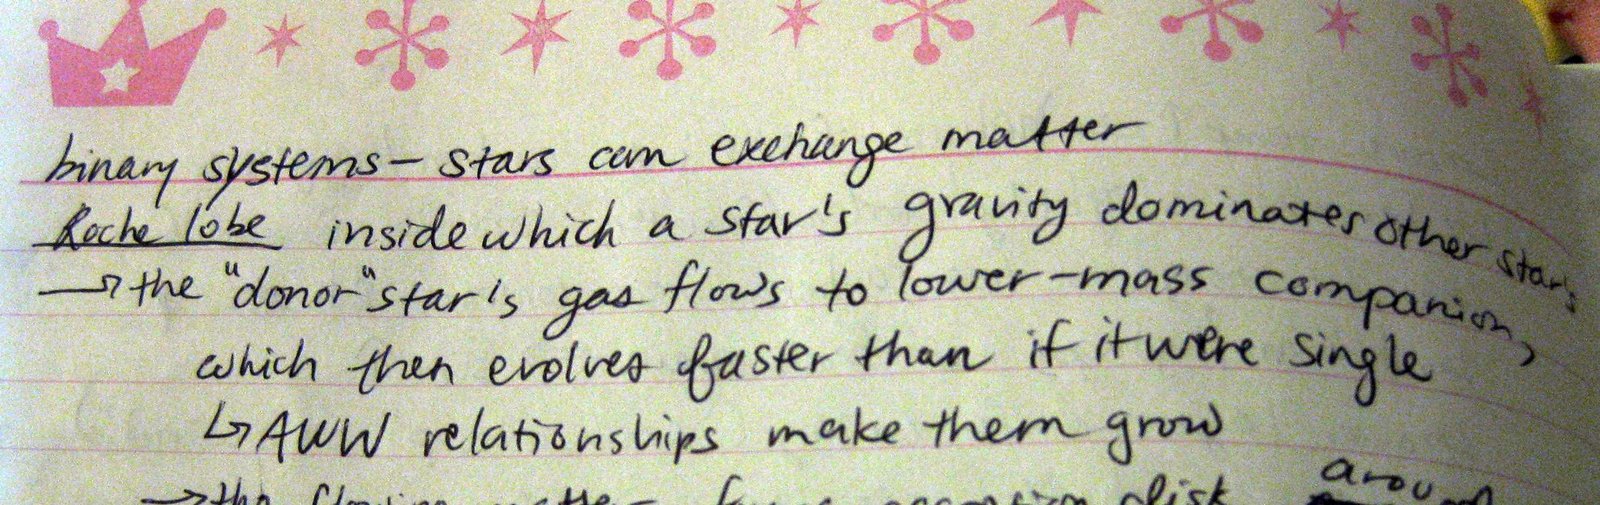 binary systems – stars can exchange matter
Roche lobe inside which a star's gravity dominates other star's
→ the "donor" star's gas flows to lower-mass companion,
which then evolves faster than if it were single
↳ AWW relationships make them grow
→ the flowing matter disk around